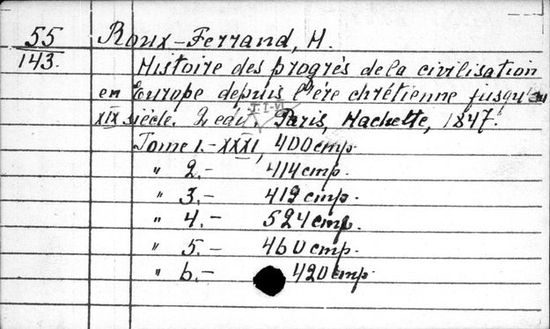 55
143.
Roux-Ferrand, H.
Histoire des progrès de la civilisation
en Europe depuis l'ère chrétienne jusqu'au
XIX siècle. 2 edi. Paris, Hachette, 1847.
T. I-VI
Tome 1.- XXXI, 400 стр.
" 2.- 414 стр.
" 3.- 419 стр.
" 4.- 524 стр.
" 5.- 460 стр.
" 6.- 420 стр.